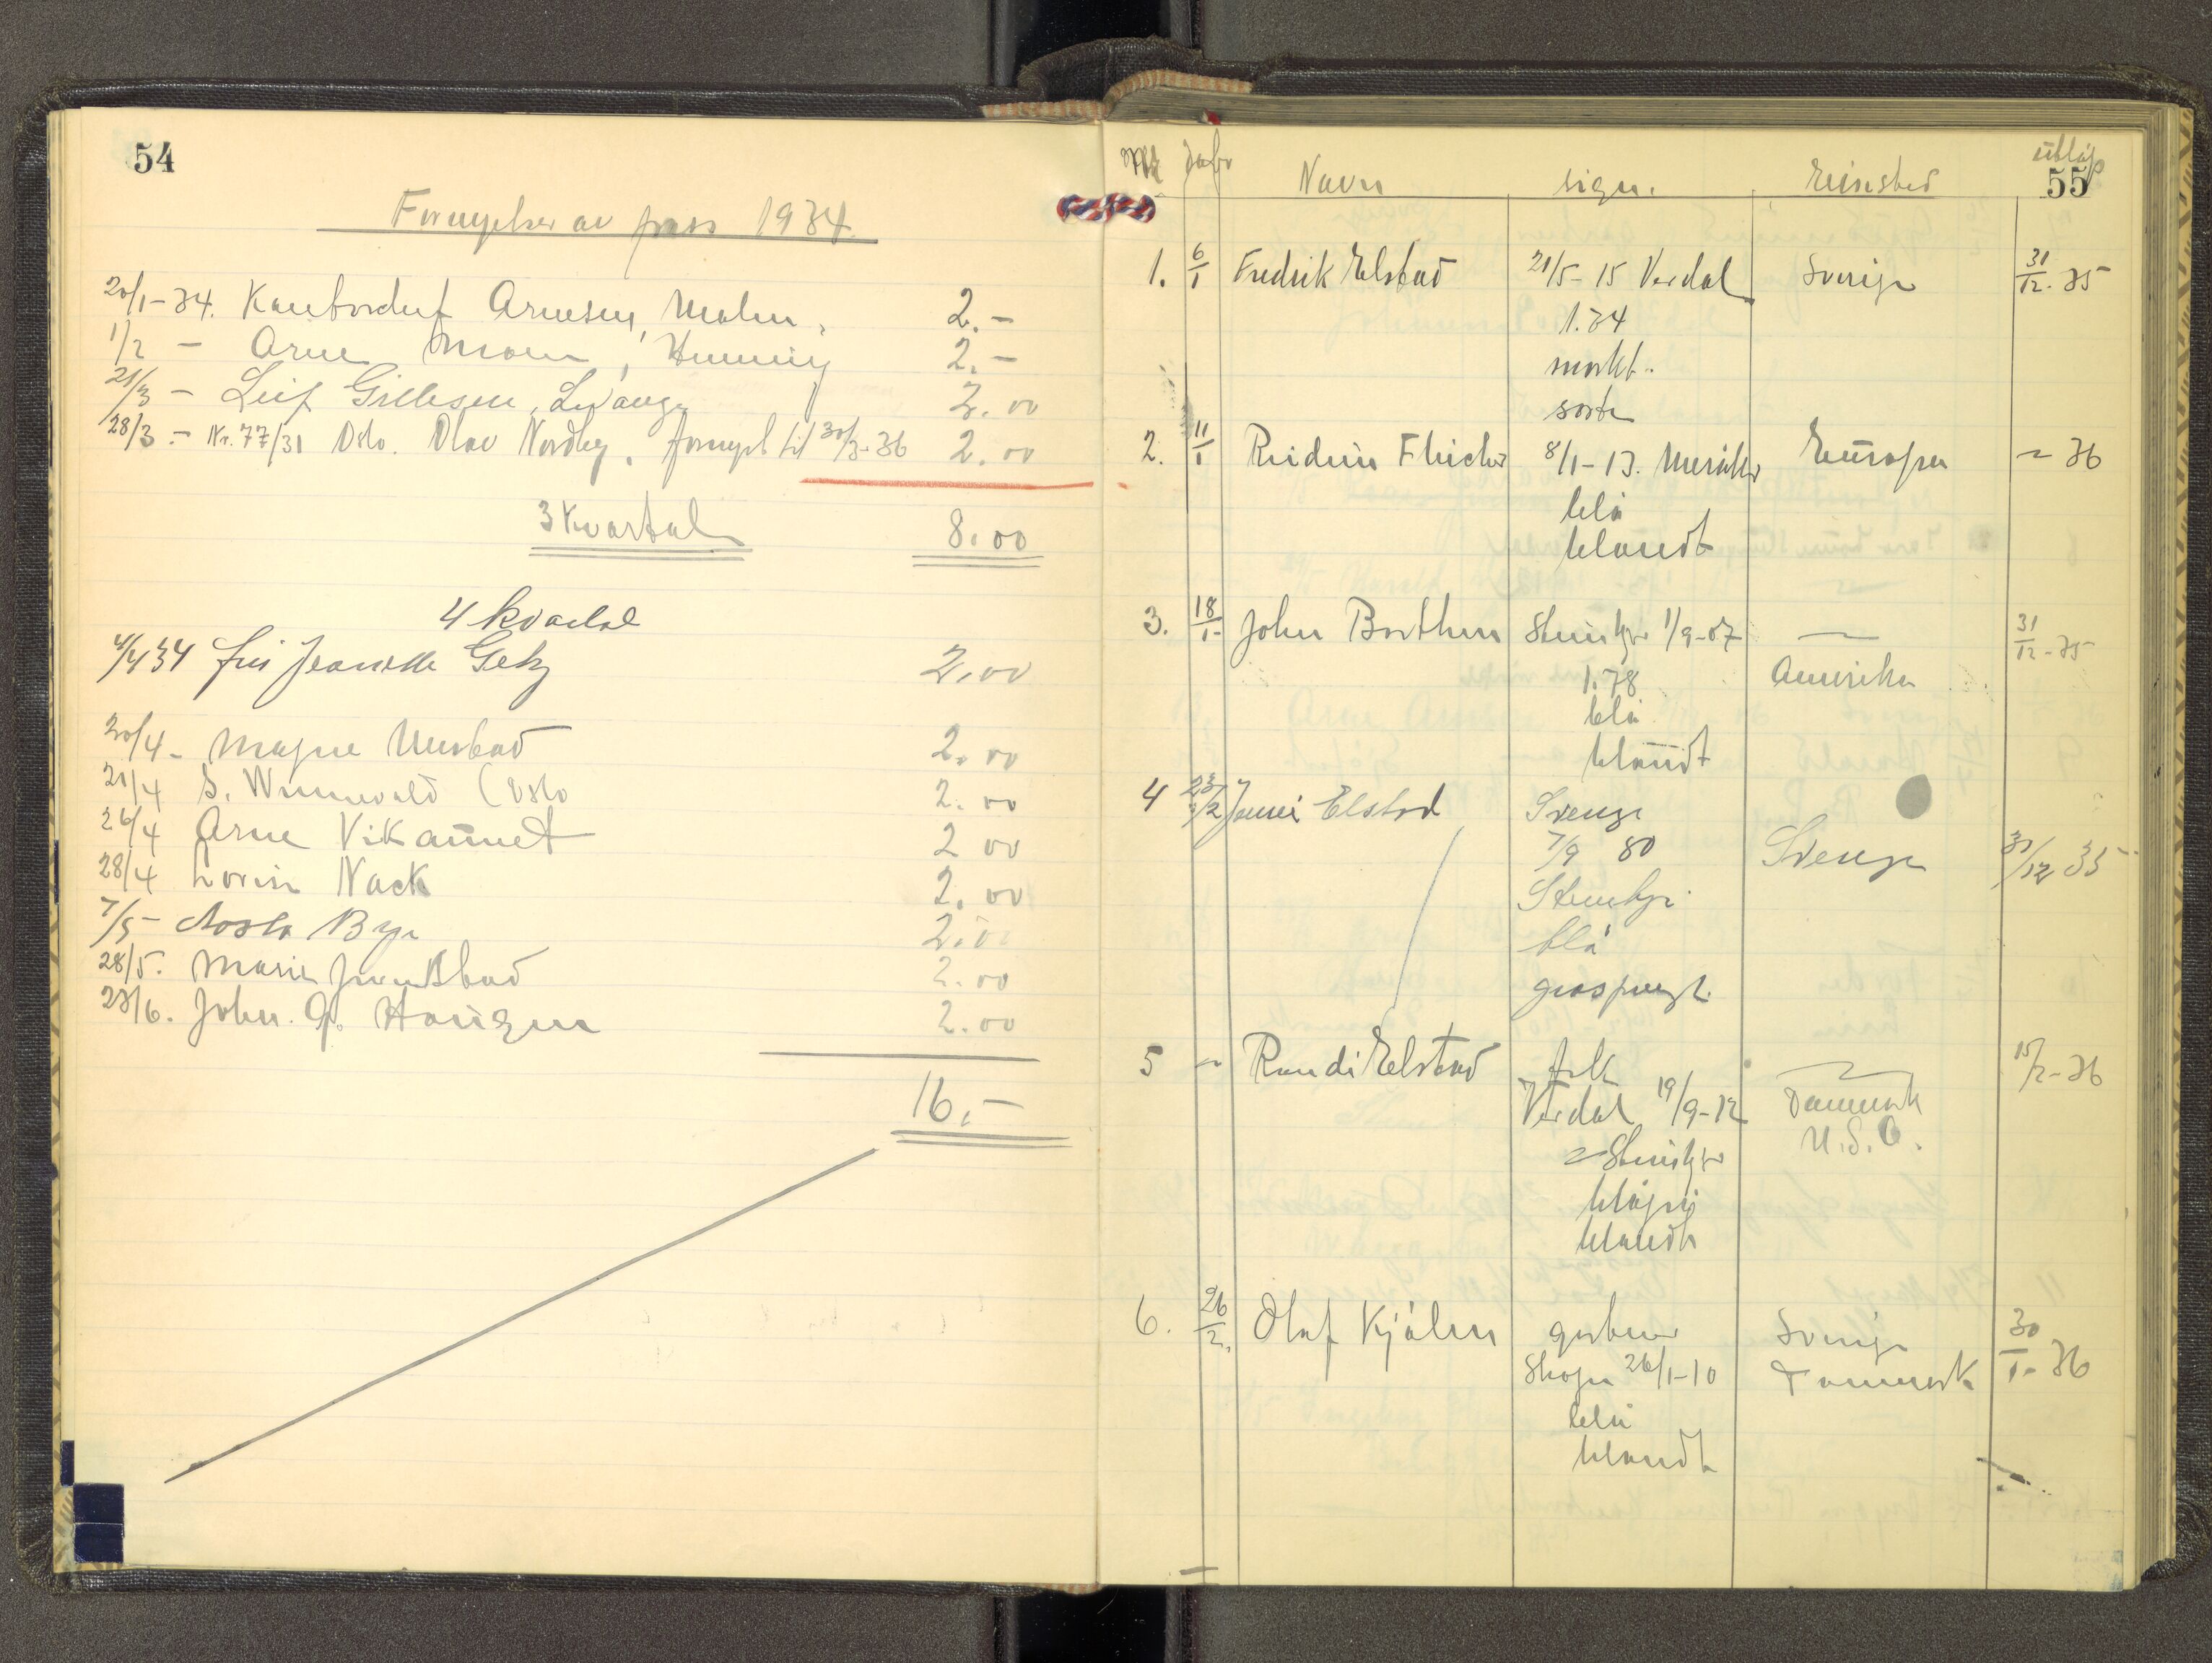 54
Fornyelser av pass 1934.
20/1-34. Kontorchef Arnesen, Malm, 2.-
1/2 - Arne Moen, 2.-
21/3 - Leif Gillesen, Levanger 2.00
28/3.- Nr. 77/31 Oslo. Olav Nordby, fornyet til 30/3-36 2.00
3 Kvartal 8.00
4 kvartal
4/4 34 fru Jeanette Getz 2.00
20/4- Magne 2.00
21/4 S. Wennevold (Oslo 2.00
26/4 Arne Vikaunet 2 00
28/4 Nack 2.00
7/5- Bye 2.0
28/5. Marie 2.00
23/6. John. G. Haugen 2.00
16.-
55
Nr Dato Navn sign. Reisested utløp
1. 6/1 Fredrik Elstad 21/5-15 Verdal Sverige 31/12-35
1.74
mørkt.
sorte
2. 11/1 Reidun 8/1-13. Meråker Europa ~ 36
blå
blandt
3. 18/1- John Barthen Steinkjer 1/9-07 — 31/12-35
1.78 Amerika
blå
blandt
4 23/2 Elstad Sverige
7/9 80 Sverige 31/12 35
Steinkjer
blå
grasprengt.
5 ~ Randi Elstad 15/2-36
Verdal 19/9-12 Danmark
~ Steinkjer U.S.A.
blågrå
blandt
6. 26/2. Olaf Kjølen gartner Sverige 30/1-36
Skogn 26/1-10 Danmark
blå
blandt